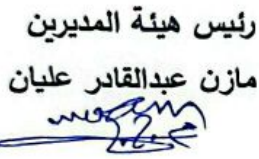 رئيس هيئة المديرين
مازن عبدالقادر عليان